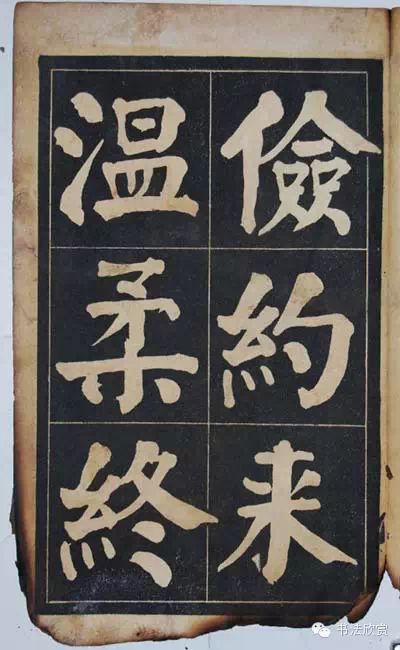 儉約来
温柔終
书法欣赏